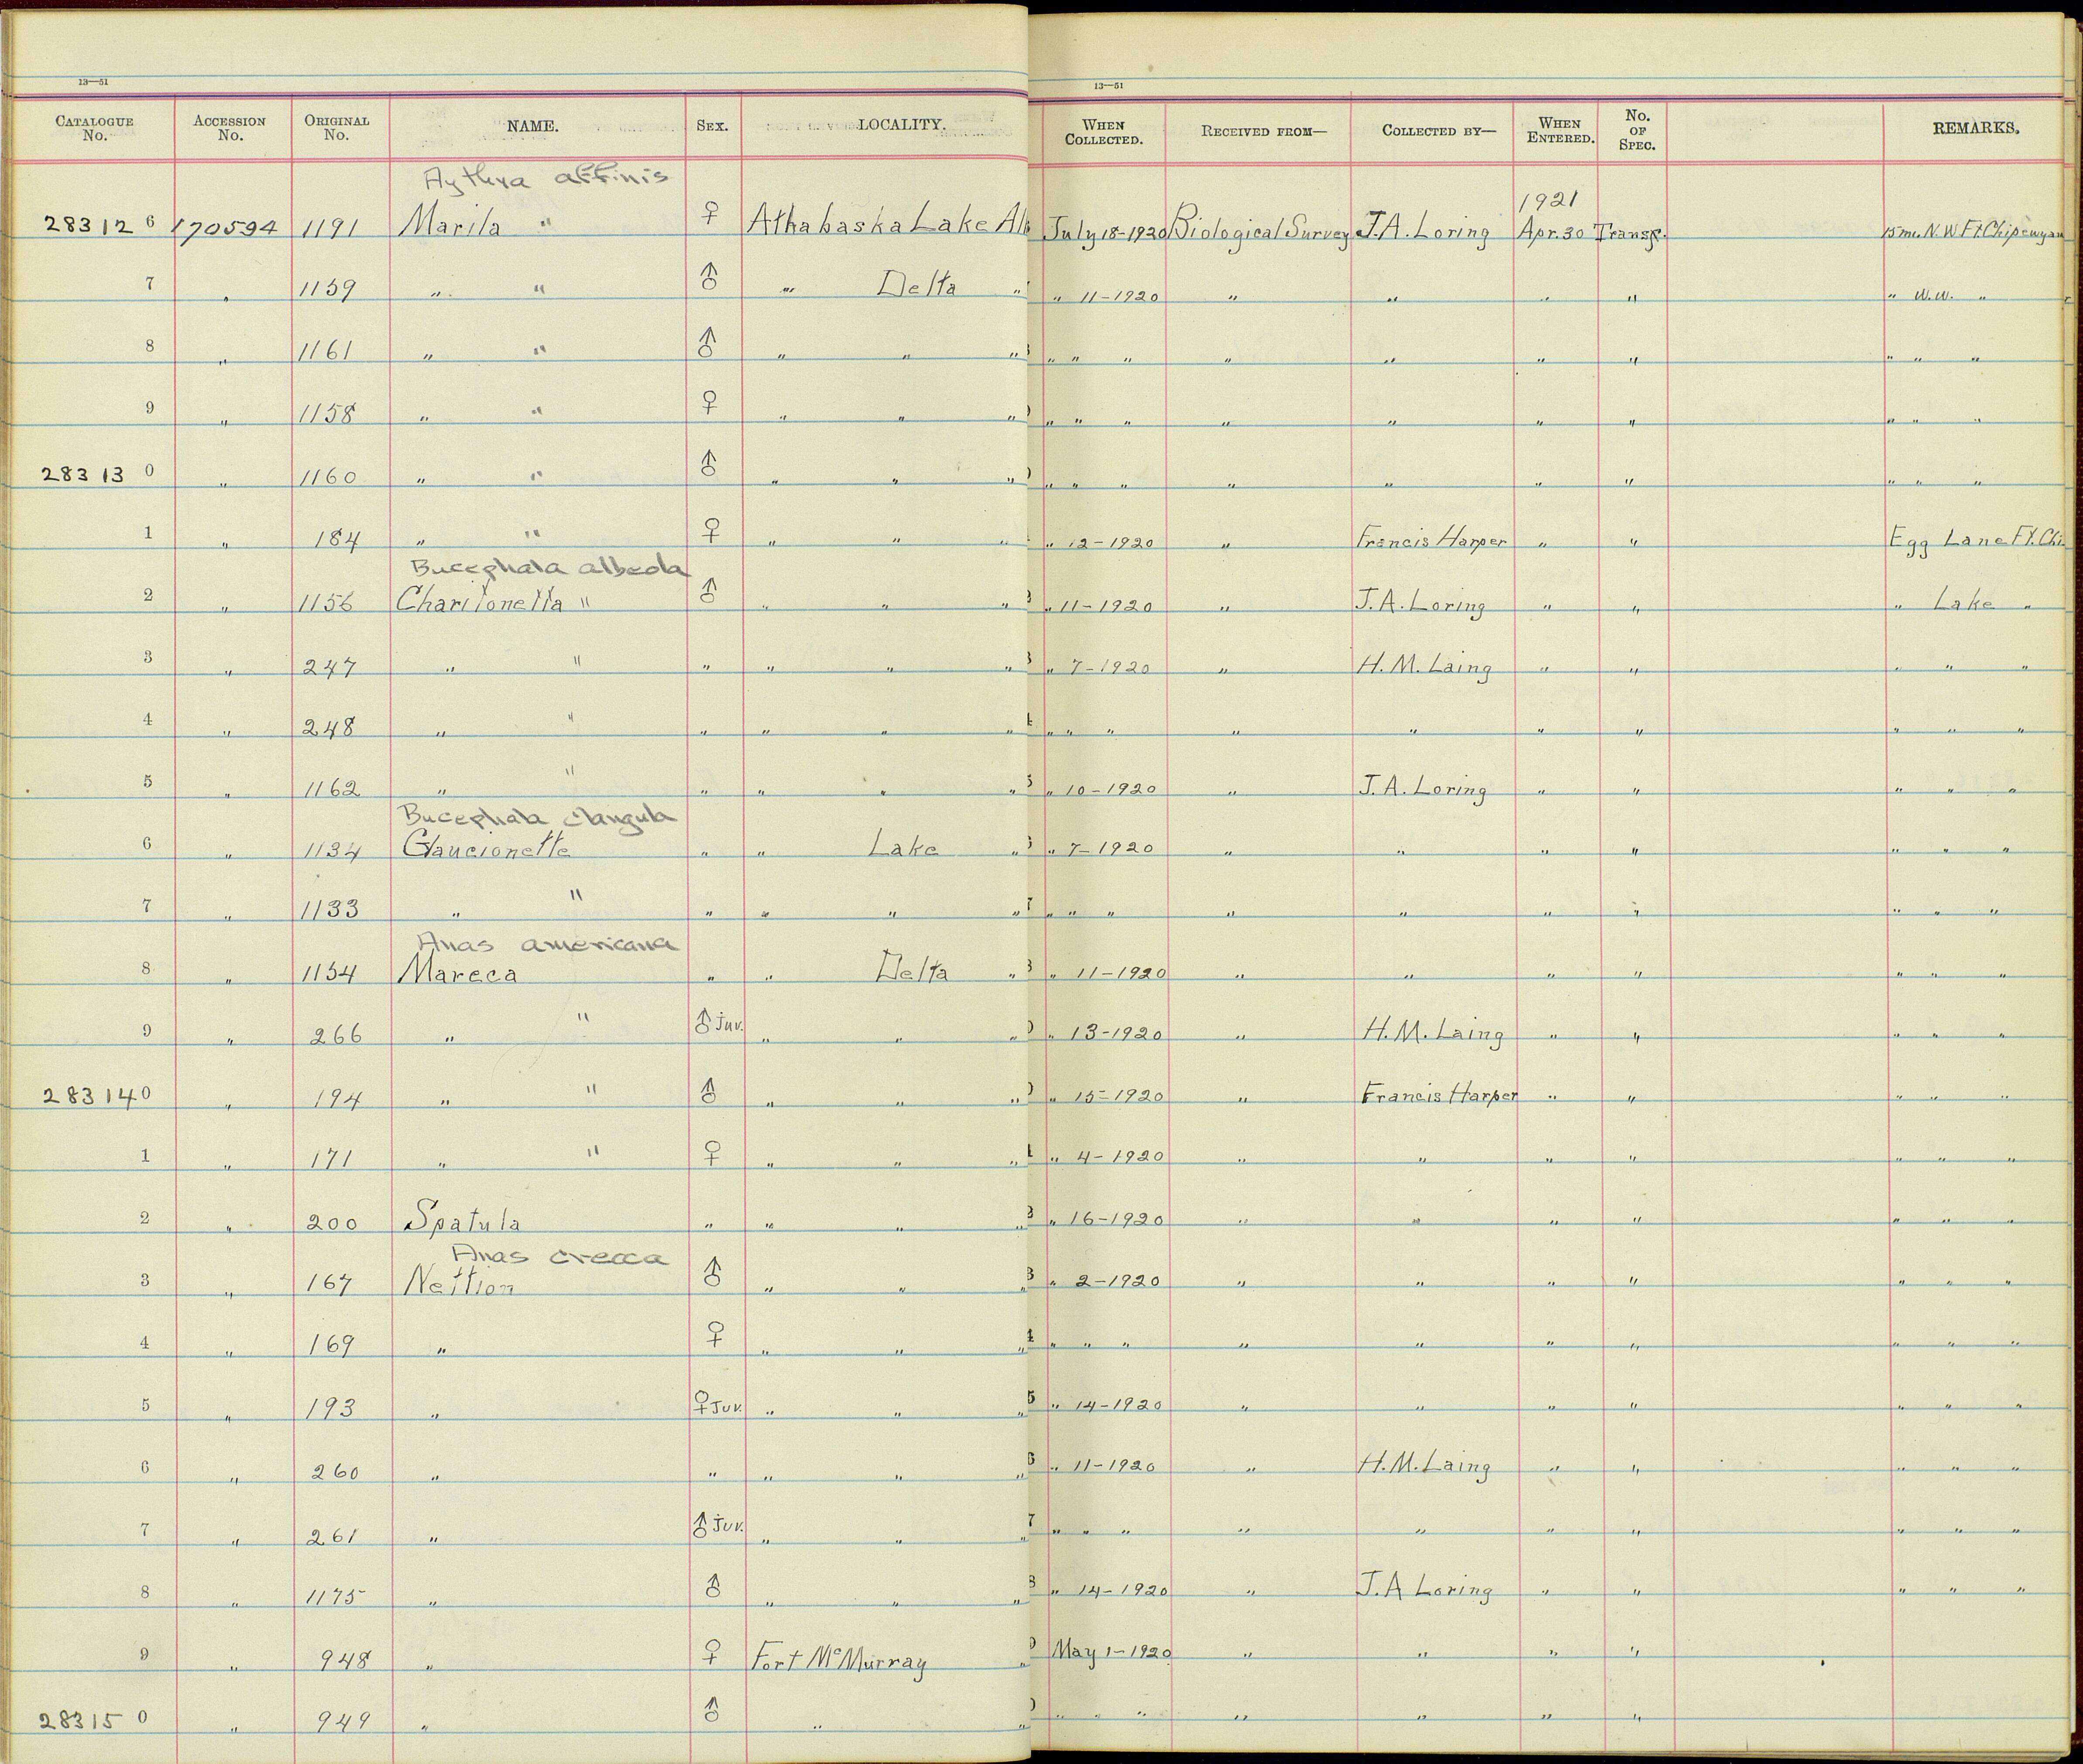 13—51 13—51
CATALOGUE No. ACCESSION No. ORIGINAL No. NAME. SEX. LOCALITY. WHEN COLLECTED. RECEIVED FROM— COLLECTED BY— WHEN ENTERED. No. OF SPEC. REMARKS.
Aythya affinis
1921
283126 170594 1191 Marila " ♀ Athabaska Lake Alb July 18-1920 Biological Survey J.A. Loring Apr. 30 Transf. 15 mi. N.W Ft. Chipewyan
7 " 1159 " " ♂ " Delta " " 11-1920 " " " " " W.W. "
8 " 1161 " " ♂ " " " " " " " " " " " " "
9 " 1158 " " ♀ " " " " " " " " " " " " "
283130 " 1160 " " ♂ " " " " " " " " " " " " "
1 " 184 " " ♀ " " " " 12-1920 " Francis Harper " " Egg Lane Ft. Chi.
Bucephala albeola
2 " 1156 Charitonetta " ♂ " " " " 11-1920 " J.A. Loring " " " Lake "
3 " 247 " " " " " " " 7-1920 " H.M. Laing " " " " "
4 " 248 " " " " " " " " " " " " " " " "
5 " 1162 " " " " " " " 10-1920 " J.A. Loring " " " " "
Bucephala clangula
6 " 1134 Glaucionetta " " Lake " " 7-1920 " " " " " " "
7 " 1133 " " " " " " " " " " " " " " " "
Anas americana
8 " 1154 Mareca " " Delta " " 11-1920 " " " " " " "
9 " 266 " " ♂ Juv. " " " " 13-1920 " H.M. Laing " " " " "
283140 " 194 " " ♂ " " " " 15-1920 " Francis Harper " " " " "
1 " 171 " " ♀ " " " " 4-1920 " " " " " " "
2 " 200 Spatula " " " " " 16-1920 " " " " " " "
Anas crecca
3 " 167 Nettion ♂ " " " " 2-1920 " " " " " " "
4 " 169 " ♀ " " " " " " " " " " " " "
5 " 193 " ♀ Juv. " " " " 14-1920 " " " " " " "
6 " 260 " " " " " " 11-1920 " H.M. Laing " " " " "
7 " 261 " ♂ Juv. " " " " " " " " " " " " "
8 " 1175 " ♂ " " " " 14-1920 " J.A Loring " " " " "
9 " 948 " ♀ Fort McMurray " May 1-1920 " " " "
283150 " 949 " ♂ " " " " " " " " "